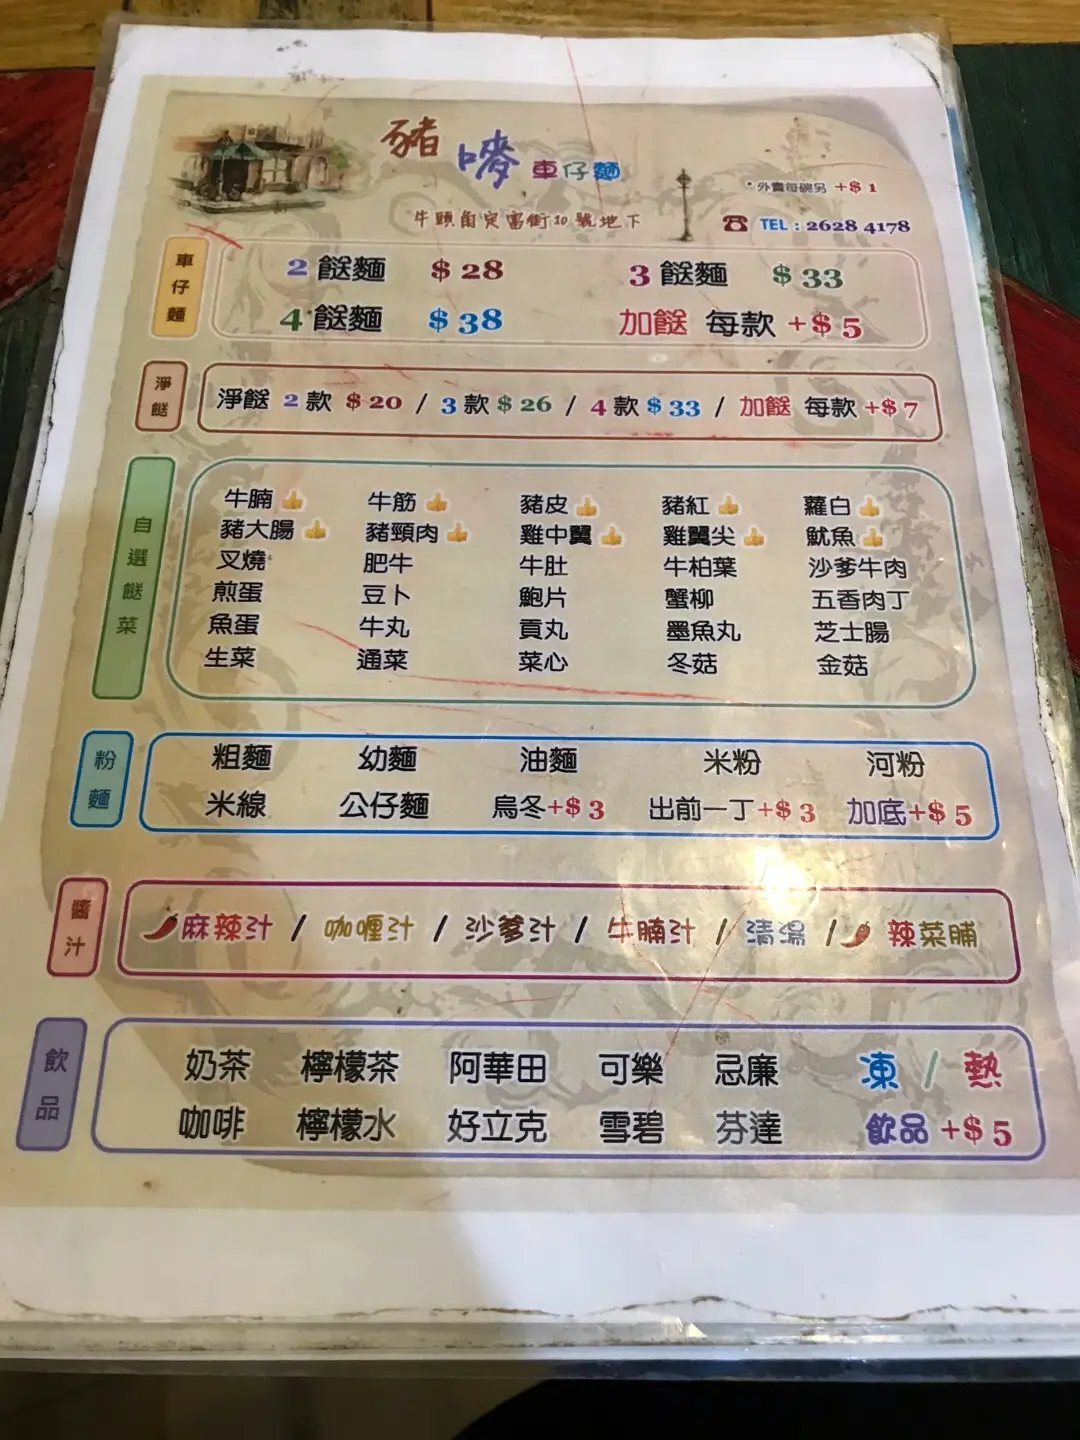 豬嘜車仔麵
*外賣每碗另 +$1
牛頭角定富街10號地下
TEL : 2628 4178
車仔麵
2 餸麵 $28 3 餸麵 $33
4 餸麵 $38 加餸 每款 +$5
淨餸
淨餸 2 款 $20 / 3 款 $26 / 4 款 $33 / 加餸 每款 +$7
自選餸菜
牛腩 牛筋 豬皮 豬紅 蘿白
豬大腸 豬頸肉 雞中翼 雞翼尖 魷魚
叉燒 肥牛 牛肚 牛柏葉 沙爹牛肉
煎蛋 豆卜 鮑片 蟹柳 五香肉丁
魚蛋 牛丸 貢丸 墨魚丸 芝士腸
生菜 通菜 菜心 冬菇 金菇
粉麵
粗麵 幼麵 油麵 米粉 河粉
米線 公仔麵 烏冬+$3 出前一丁+$3 加底+$5
醬汁
麻辣汁 / 咖喱汁 / 沙爹汁 / 牛腩汁 / 清湯 / 辣菜脯
飲品
奶茶 檸檬茶 阿華田 可樂 忌廉 凍 / 熱
咖啡 檸檬水 好立克 雪碧 芬達 飲品 +$5